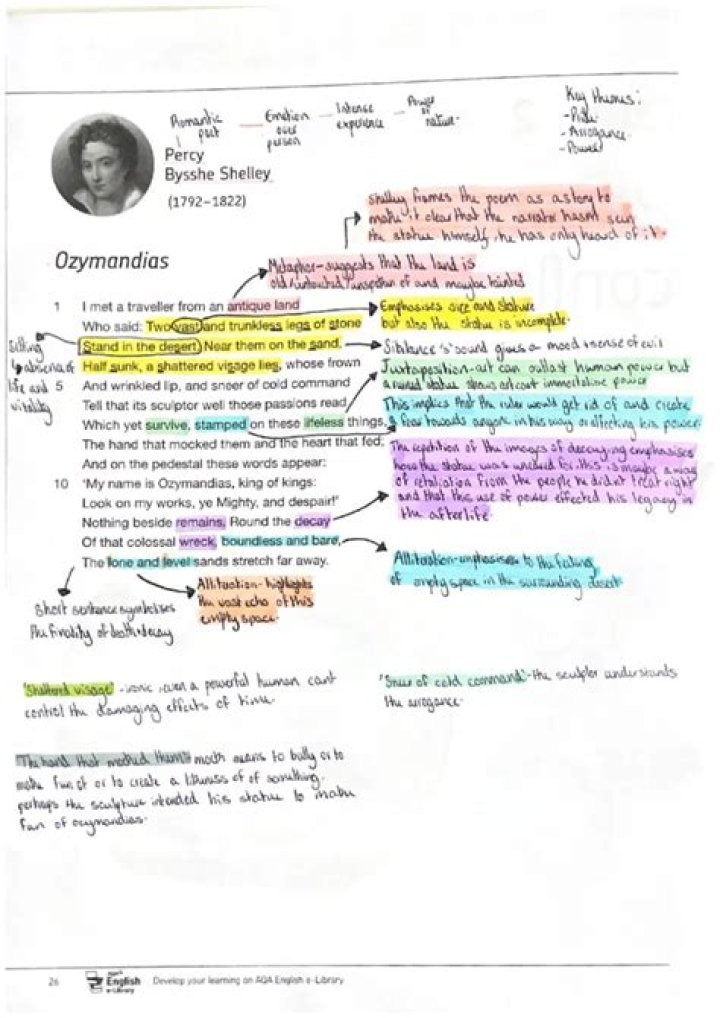 Romantic poet — Emotion over reason — Intense experience — Power of nature.
Key themes:
- Pride
- Arrogance.
- Power
Percy
Bysshe Shelley
(1792–1822)
Shelley frames the poem as a story to
make it clear that the narrator hasn't seen
the statue himself, he has only heard of it.
Ozymandias
Metaphor - suggests that the land is
old/untouched/unspoken of and maybe
1 I met a traveller from an antique land
Who said: Two vast and trunkless legs of stone
Stand in the desert. Near them on the sand,
Half sunk, a shattered visage lies, whose frown
5 And wrinkled lip, and sneer of cold command
Tell that its sculptor well those passions read
Which yet survive, stamped on these lifeless things,
The hand that mocked them and the heart that fed;
And on the pedestal these words appear:
10 'My name is Ozymandias, king of kings:
Look on my works, ye Mighty, and despair!'
Nothing beside remains. Round the decay
Of that colossal wreck, boundless and bare,
The lone and level sands stretch far away.
Setting
absence of
life and
vitality
Emphasises size and stature
but also the statue is incomplete.
Sibilance 's' sound gives a mood + sense of evil
Juxtaposition - art can outlast human power but
a ruined statue shows art cant immortalise power
This implies that the ruler would get rid of and create
a fear towards anyone in his way or affecting his power.
The repetition of the images of decaying emphasises
how the statue was uncared for. this is maybe a way
of retaliation from the people he didn't treat right
and that this use of power effected his legacy in
the afterlife.
Alliteration - emphasises to the feeling
of empty space in the surrounding desert
Alliteration - highlights
the vast echo of this
empty space.
Short sentence symbolises
the finality of death + decay
'Shattered visage' - ironic, even a powerful human cant
control the damaging effects of time.
'Sneer of cold command' - the sculptor understands
the arrogance.
'The hand that mocked them' - mock means to bully or to
make fun of or to create a likeness of of something.
perhaps the sculpture intended his statue to make
fun of ozymandias.
26
AQA
English
e-Library
Develop your learning on AQA English e-Library